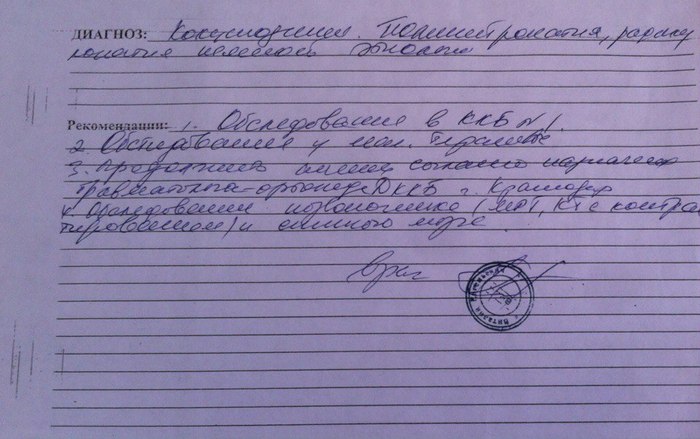 ДИАГНОЗ: Кокцигодиния. Полинейропатия, радику
лопатия неясной этиологии
Рекомендации: 1. Обследование в ККБ №1.
2. Обследование у
3. Продолжить лечение согласно назначения
травматолога-ортопеда ДККБ г. Краснодар
4. Обследование позвоночника (МРТ, КТ с контрас
тированием) и спинного мозга.
Врач